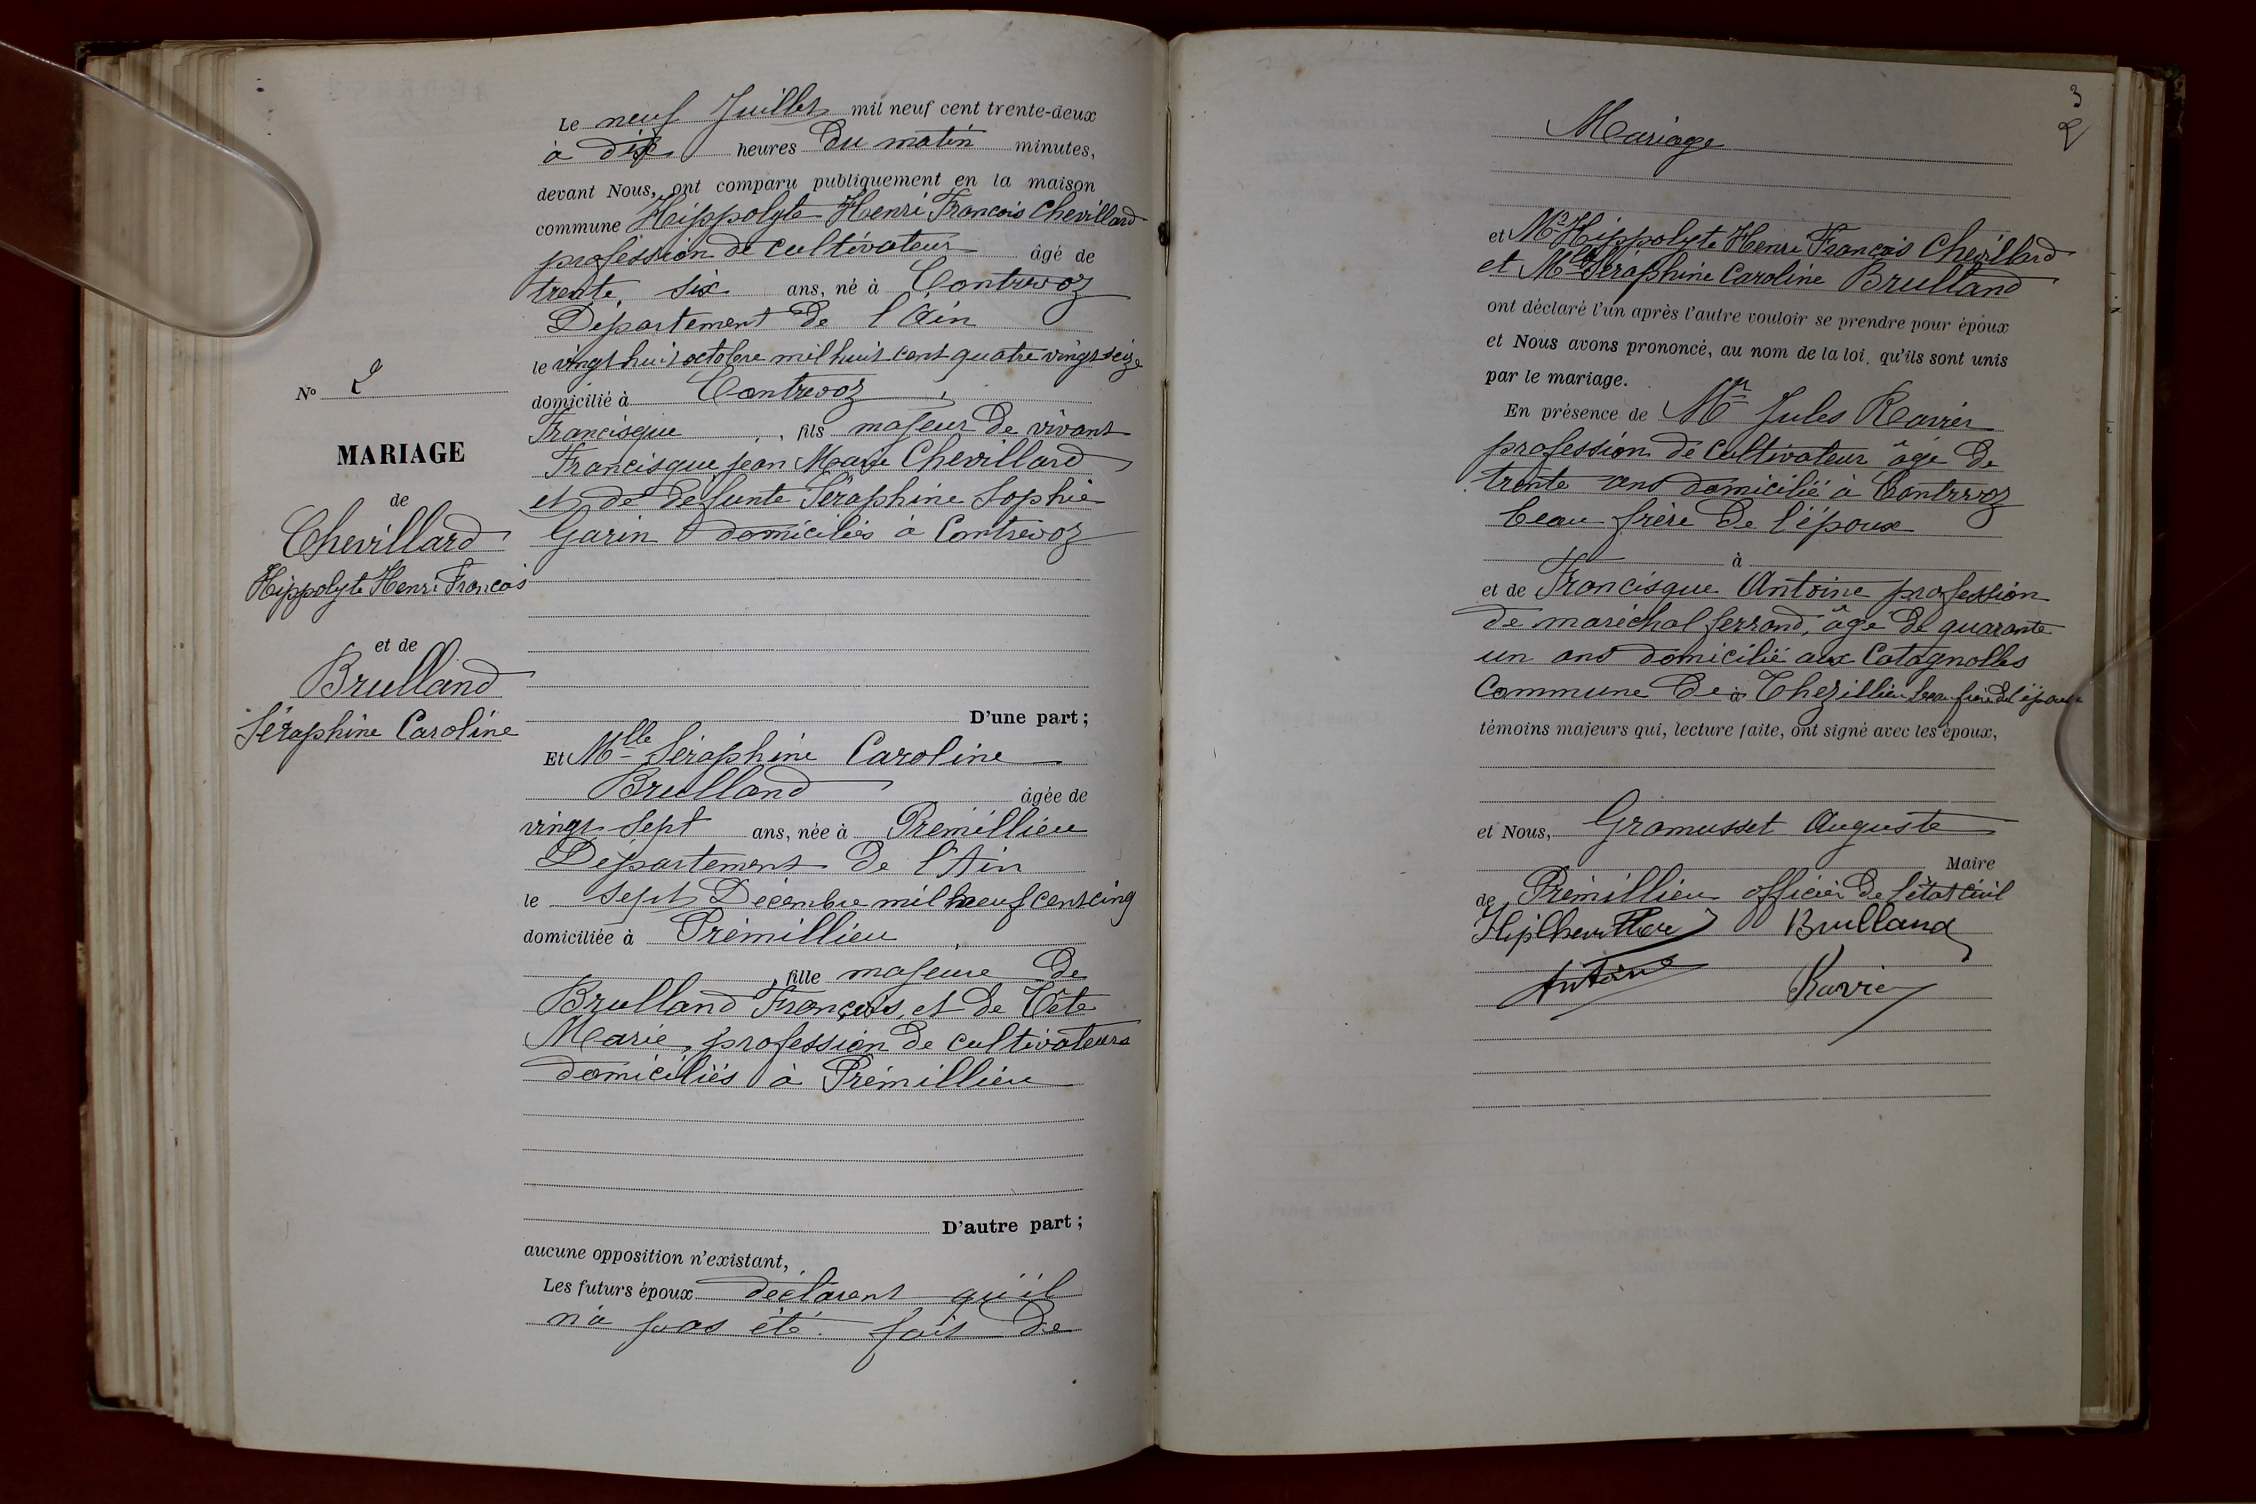 Le neuf Juillet mil neuf cent trente-deux
à dix heures du matin minutes,
devant Nous, ont comparu publiquement en la maison
commune Hippolyte Henri François Chevillard
profession de cultivateur âgé de
trente six ans, né à Contrevoz
Département de l'Ain
le vingt huit octobre mil huit cent quatre vingt seize
domicilié à Contrevoz,
Francisque, fils majeur de vivant
Francisque Jean Marie Chevillard
et de défunte Séraphine Sophie
Garin domiciliés à Contrevoz
D'une part;
Nº 2
MARIAGE
de
Chevillard
Hippolyte Henri François
et de
Brulland
Séraphine Caroline
Et Mlle Séraphine Caroline
Brulland âgée de
vingt sept ans, née à Prémillieu
Département de l'Ain
le sept Décembre mil neuf cent cinq
domiciliée à Prémillieu,
, fille majeure de
Brulland François, et de Tête
Marie, profession de cultivateurs
domiciliés à Prémillieu
D'autre part;
aucune opposition n'existant,
Les futurs époux déclarent qu'il
n'a pas été fait de
3
2
Mariage
et Mr Hippolyte Henri François Chevillard
et Mlle Séraphine Caroline Brulland
ont déclaré l'un après l'autre vouloir se prendre pour époux
et Nous avons prononcé, au nom de la loi, qu'ils sont unis
par le mariage.
En présence de Mr Jules Ravier
profession de cultivateur âgé de
trente ans domicilié à Contrevoz
beau frère de l'époux
à
et de Francisque Antoine profession
de maréchal ferrand, âgé de quarante
un ans domicilié aux Catagnolles
Commune de à Thézillieu beau frère de l'épouse
témoins majeurs qui, lecture faite, ont signé avec les époux,
et Nous, Gramusset Auguste
Maire
de Prémillieu officier de l'état civil
HipChevillard Brulland
Antoine Ravier